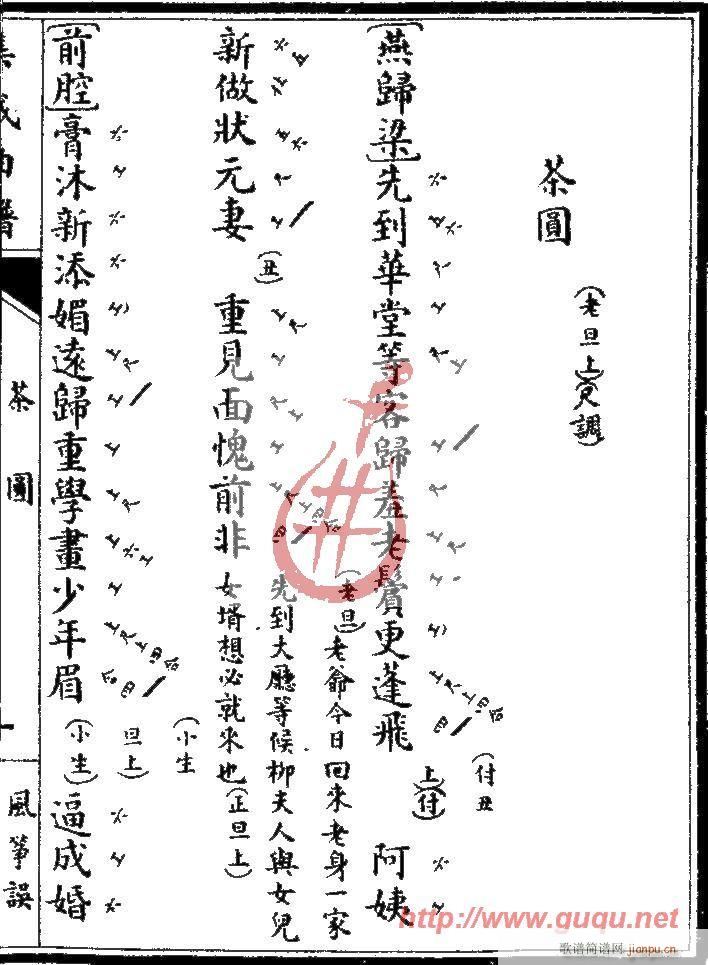 茶圓
(老旦上)(尺調)
[燕歸梁]先到華堂等客歸羞老鬢更蓬飛
(付丑上)(付)阿姨
新做狀元妻(丑)重見面愧前非
(老旦)老爺今日回來老身一家
先到大廳等候柳夫人與女兒
女壻想必就来也(正旦上)
[前腔]膏沐新添媚遠歸重學畫少年眉
(小生旦上)(小生)逼成婚
集成曲譜
茶圓
風箏誤
http://www.guqu.net
歌谱简谱网
jianpu.cn